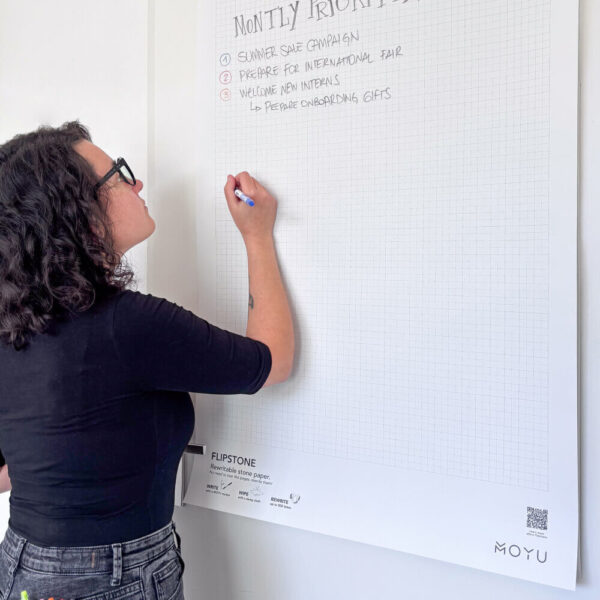 NONTLY PRIORITI
1 SUMMER SALE CAMPAIGN
2 PREPARE FOR INTERNATIONAL FAIR
3 WELCOME NEW INTERNS
↳ PREPARE ONBOARDING GIFTS
FLIPSTONE
Rewritable stone paper.
WRITE
WIPE
REWRITE
MOYU